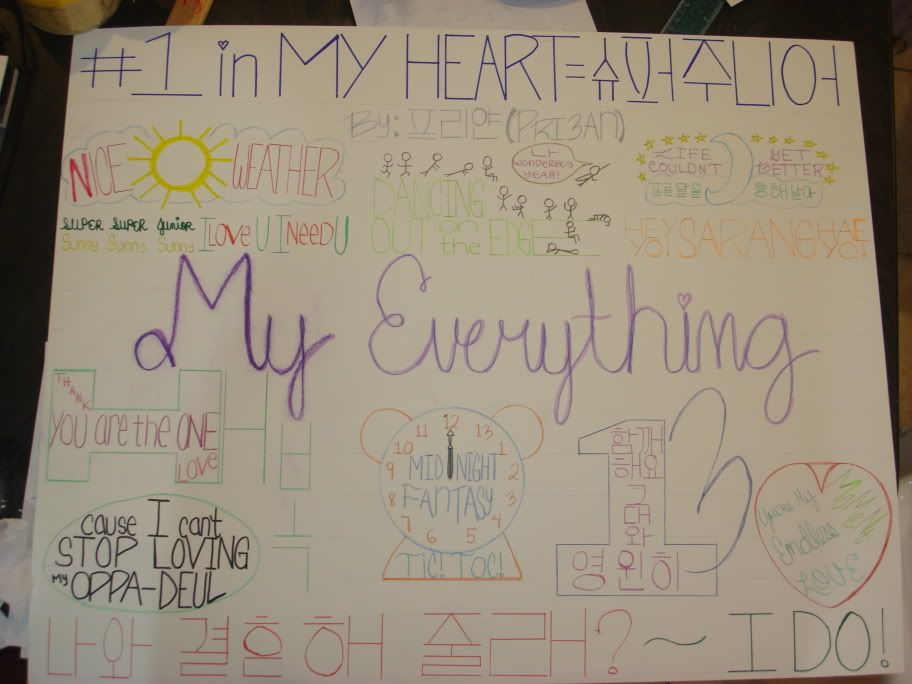 #1 in MY HEART=슈퍼주니어
By: 프리얀(PRI3AN)
NICE WEATHER
SUPER SUPER Junior
Sunny Sunny Sunny
I LOVE U I NEED U
나
WONDERBOY
YEAH!
DANCING
OUT on the EDGE
LIFE
COULDN'T
GET
BETTER
HEY YO! SARANGHAE YO!
My Everything
THANK
YOU are the ONE
LOVE
cause I can't
STOP LOVING
my OPPA-DEUL
12
11 13
10 1
9 2
8 3
7 4
6 5
MIDNIGHT
FANTASY
TIC! TOC!
함께
해요
그
대
와
영원히
13
You're My
Endless
LOVE
나와 결혼해 줄래? ~ I DO!